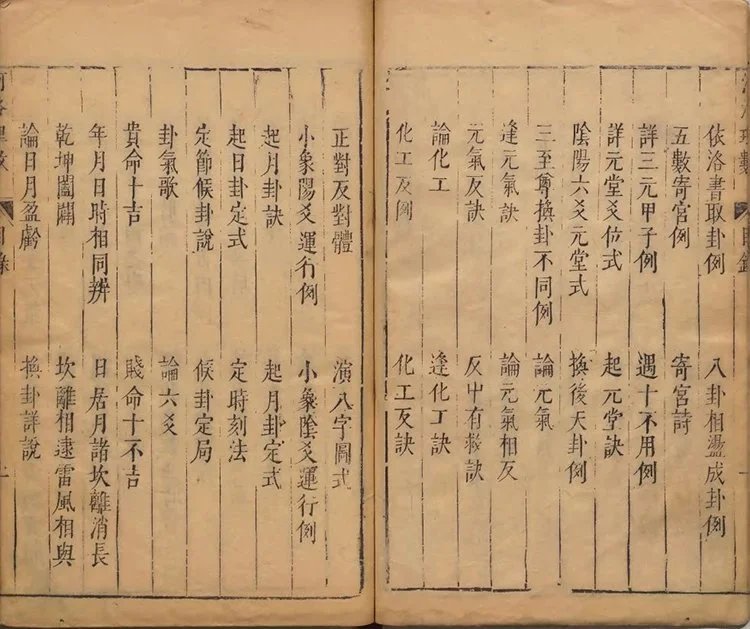 依洛書取卦例　八卦相盪成卦例
五數寄宮例　寄宮詩
詳三元甲子例　遇十不用例
詳元堂爻位式　起元堂訣
陰陽六爻元堂式　換後天卦例
三至尊換卦不同例　論元氣
逢元氣訣　論元氣相反
元氣反訣　反中有救訣
論化工　逢化工訣
化工反例　化工反訣
正對反對體　演八字圖式
小象陽爻運行例　小象陰爻運行例
起月卦訣　起月卦定式
起日卦定式　定時刻法
定節候卦說　候卦定局
卦氣歌　論六爻
貴命十吉　賤命十不吉
年月日時相同辨　日居月諸坎離消長
乾坤闔闢　坎離相逮雷風相與
論日月盈虧　換卦詳說